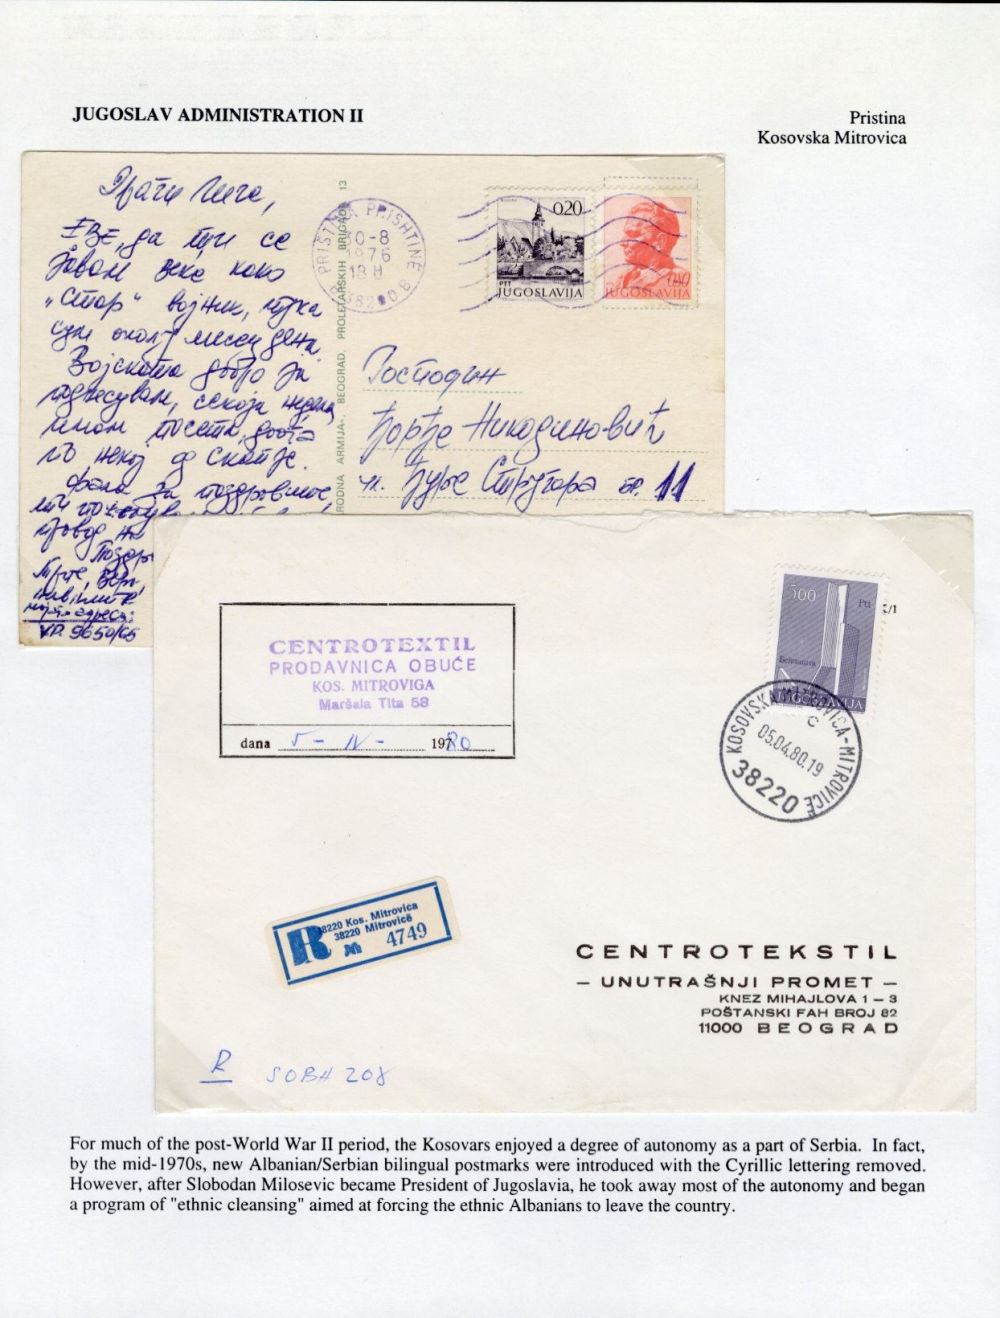 JUGOSLAV ADMINISTRATION II
Pristina
Kosovska Mitrovica
Драги
ЕВЕ, да ти се
јавам веќе како
"Стар" војник, тука
сум околу месец дена
Војската добро ја
поднесувам, секоја недела
имам посета, доаѓа
некој од Скопје.
фала за поздравите,
адреса:
V.P. 9650/65
RODNA ARMIJA-. BEOGRAD. PROLETARSKIH BRIGADA 13
PRIŠTINA PRISHTINE
30-8
1976
18 H
0,20
PTT
JUGOSLAVIJA
0,80
JUGOSLAVIJA
Господин
Ђорђе Никодиновић
ул. Ђуре Стругара бр. 11
CENTROTEXTIL
PRODAVNICA OBUĆE
KOS. MITROVIGA
Maršala Tita 58
dana 5 - IV - 1980
500
Ptt
JUGOSLAVIJA
/1
KOSOVSKA MITROVICA-MITROVICË
C
05.04.80.19
38220
38220 Kos. Mitrovica
38220 Mitrovicë
R № 4749
CENTROTEKSTIL
— UNUTRAŠNJI PROMET —
KNEZ MIHAJLOVA 1 — 3
POŠTANSKI FAH BROJ 82
11000 BEOGRAD
R SOBA 208
For much of the post-World War II period, the Kosovars enjoyed a degree of autonomy as a part of Serbia. In fact,
by the mid-1970s, new Albanian/Serbian bilingual postmarks were introduced with the Cyrillic lettering removed.
However, after Slobodan Milosevic became President of Jugoslavia, he took away most of the autonomy and began
a program of "ethnic cleansing" aimed at forcing the ethnic Albanians to leave the country.